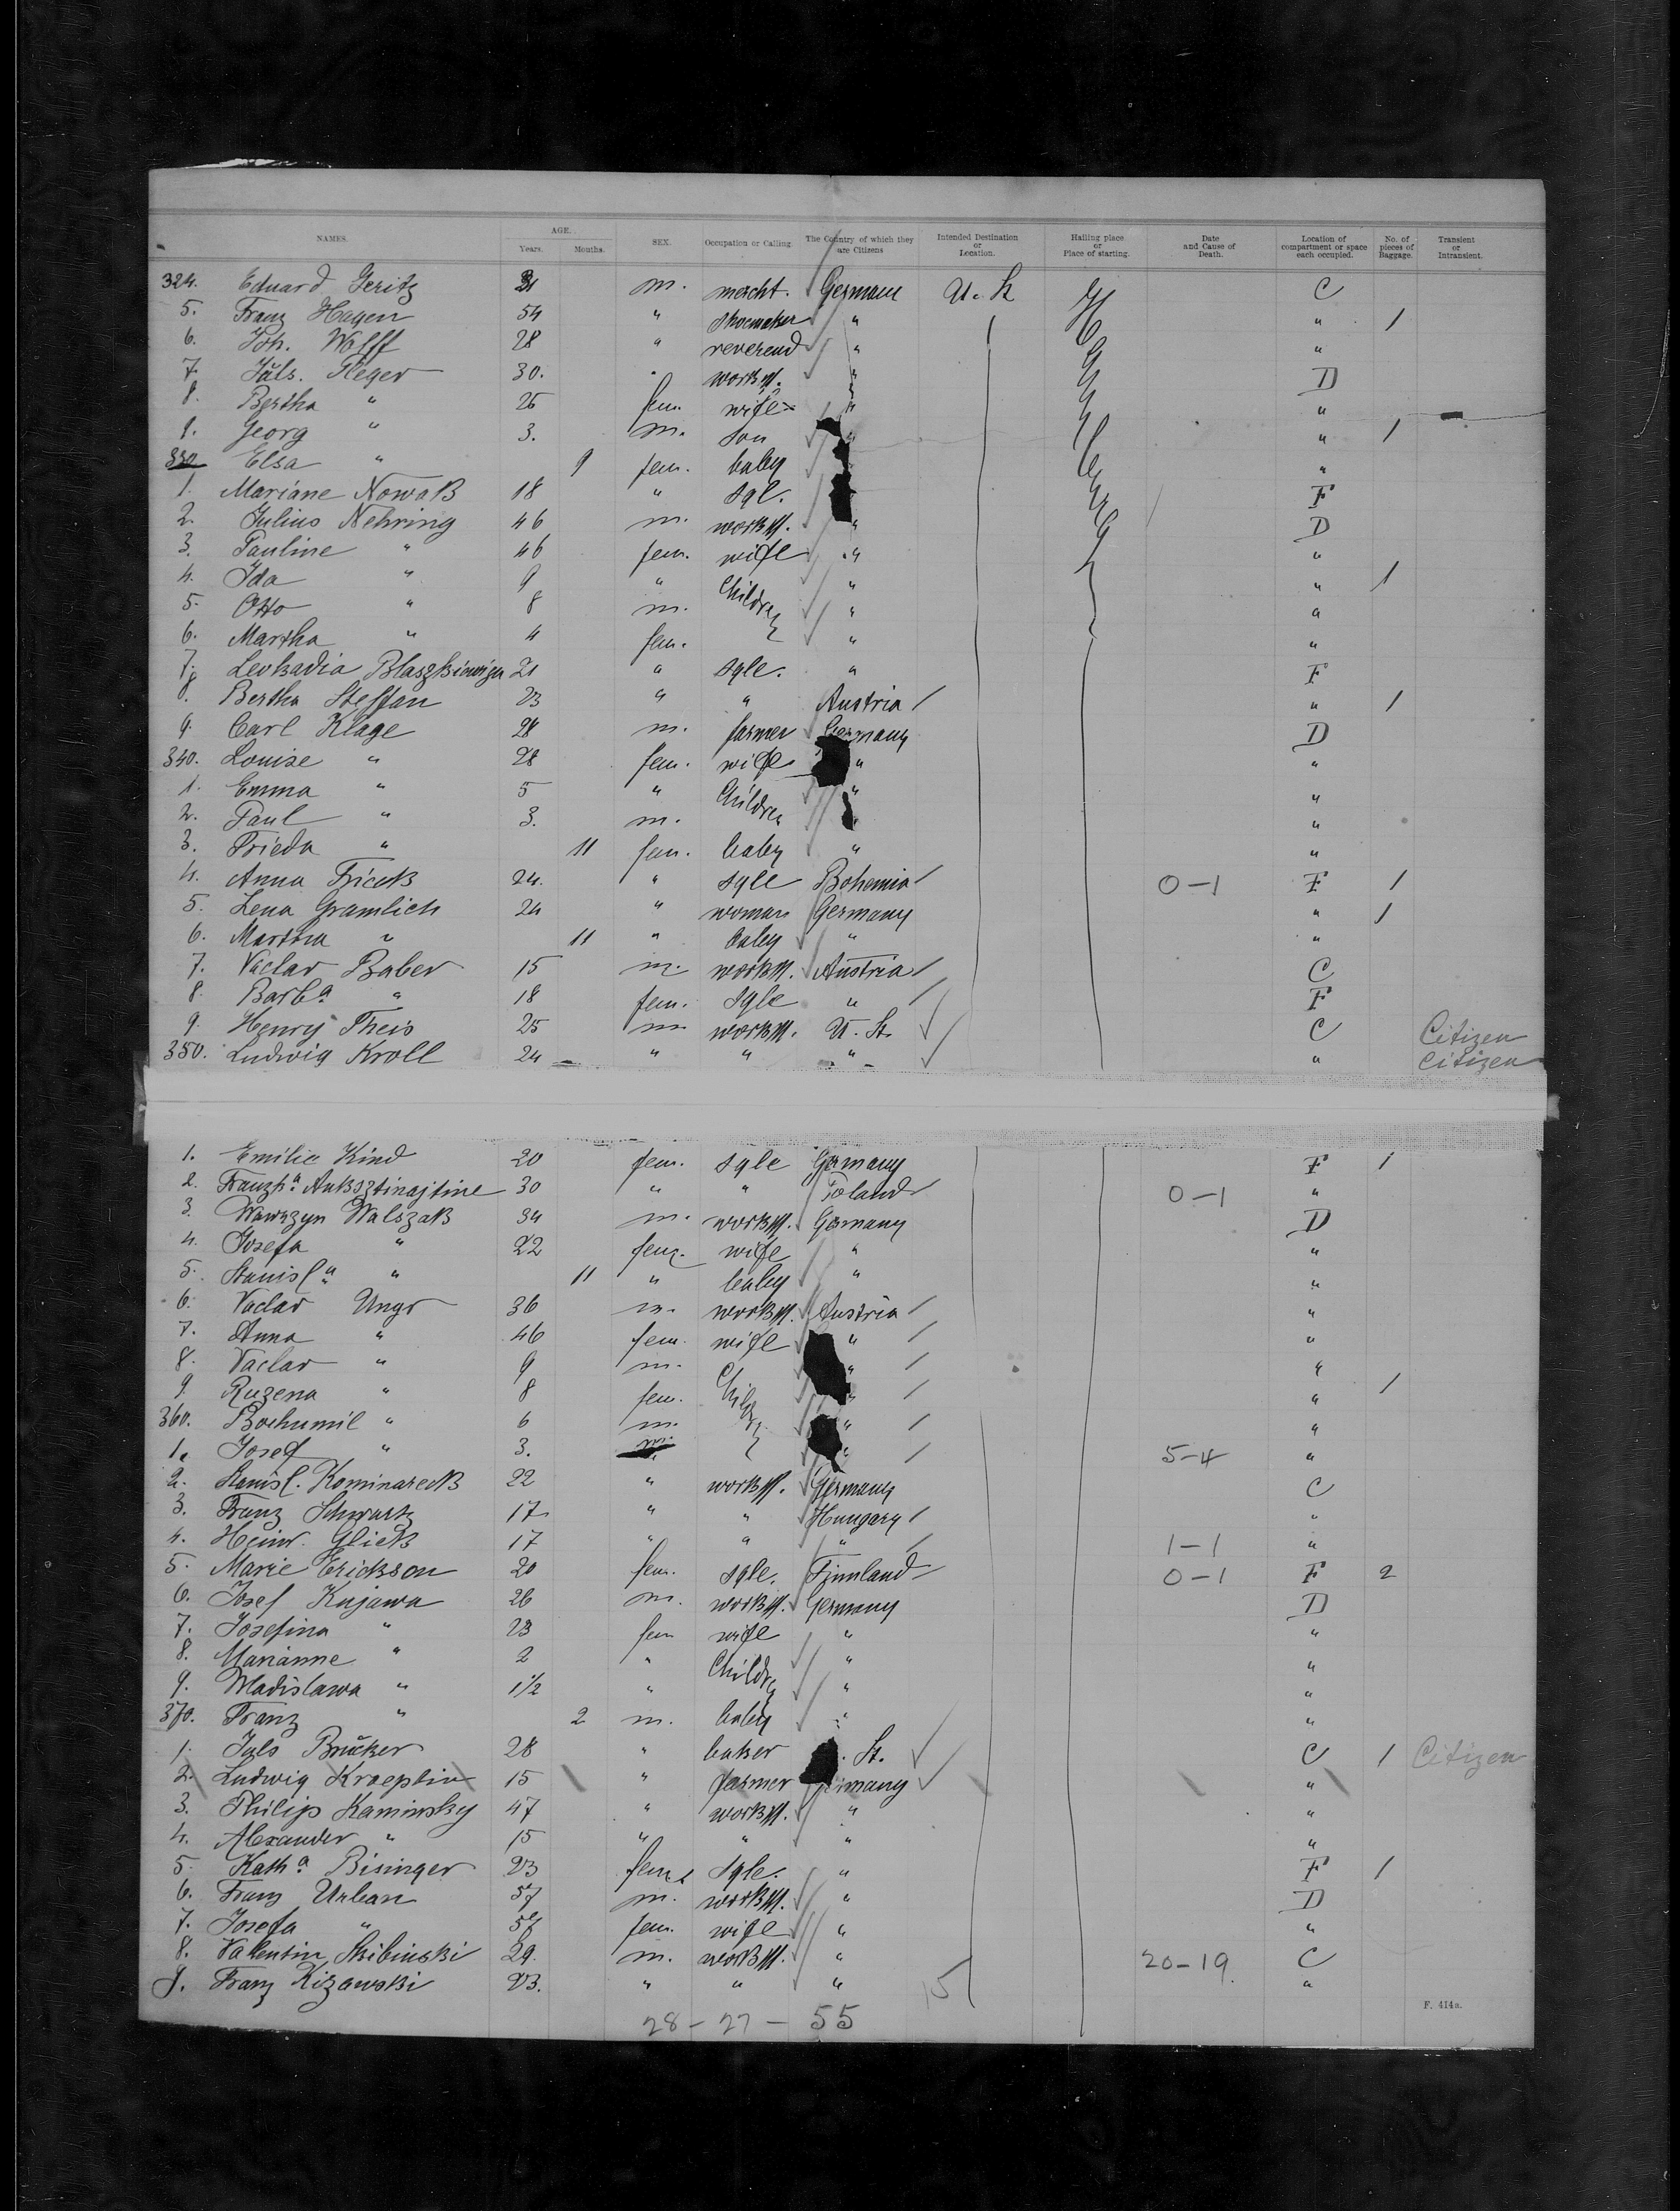 NAMES. AGE. Years. Months. SEX. Occupation or Calling. The Country of which they are Citizens Intended Destination or Location. Hailing place or Place of starting. Date and Cause of Death. Location of compartment or space each occupied. No. of pieces of Baggage. Transient or Intransient.
324. Eduard Geritz m. mercht. Germany U. S. C
5. Franz Hagen 54 " shoemaker " " 1
6. Joh. Wolff 28 " reverend " "
7. Juls. Pleger 30. " workm. " D
8. Bertha " 25 fem. wife " "
9. Georg " 3. m. son " " 1
330 Elsa " 9 fem. baby "
1. Mariane Nowak 18 " sgl. F
2. Julius Nehring 46 m. workm. " D
3. Pauline " 46 fem. wife " "
4. Ida " 9 " Children " " 1
5. Otto " 8 m. " "
6. Martha " 4 fem. " "
7. Leokadia 21 " sgle. " F
8. Bertha Steffan 23 " " Austria " 1
9. Carl Klage 28 m. farmer Germany D
340. Louise " 28 fem. wife " "
1. Emma " 5 " Children " "
2. Paul " 3. m. "
3. Frieda " 11 fem. baby " "
4. Anna Fricek 24. " sgle Bohemia 0-1 F 1
5. Lena Gramlich 24 " woman Germany " 1
6. Martha " 11 " baby " "
7. Vaclav Baber 15 m. workm. Austria C
8. Barba " 18 fem. sgle " F
9. Henry Theis 25 m workm. U. St. C Citizen
350. Ludwig Kroll 24 " " " " Citizen
1. Emilie Kind 20 fem. sgle Germany F 1
2. Franzka 30 " " Poland 0-1 "
3. Wawrzyn Walszak 34 m. workm. Germany D
4. Josefa " 22 fem. wife " "
5. Stanisla " 11 " baby " "
6. Vaclav Ungr 36 m. workm. Austria "
7. Anna " 46 fem. wife " "
8. Vaclav " 9 m. " "
9. Ruzena " 8 fem. " " 1
360. Bohumil " 6 m. " "
1. Josef " 3. m. " 5-4 "
2. Stanisl. Kominareck 22 " workm. Germany C
3. Franz Schwartz 17 " " Hungary "
4. Heinr. Glick 17 " " " 1-1 "
5. Marie Erickson 20 fem. sgle. Finnland 0-1 F 2
6. Josef Kujawa 26 m. workm. Germany D
7. Josefina " 23 fem wife " "
8. Marianne " 2 " Children " "
9. Wladislawa " 1½ " " "
370. Franz " 2 m. baby " "
1. Juls Brucker 28 " baker St. C 1 Citizen
2. Ludwig Kroeplin 15 " farmer Germany "
3. Philip Kaminsky 47 " workm. " "
4. Alexander " 15 " " " "
5. Katha Bisinger 23 fem. sgle. " F 1
6. Franz Urban 57 m. workm. " D
7. Josefa " fem. wife " "
8. Valentin Skibinski 29. m. workm. " 20-19 C
9. Franz Kizawski 23. " " " "
28 - 27 - 55
F. 414a.